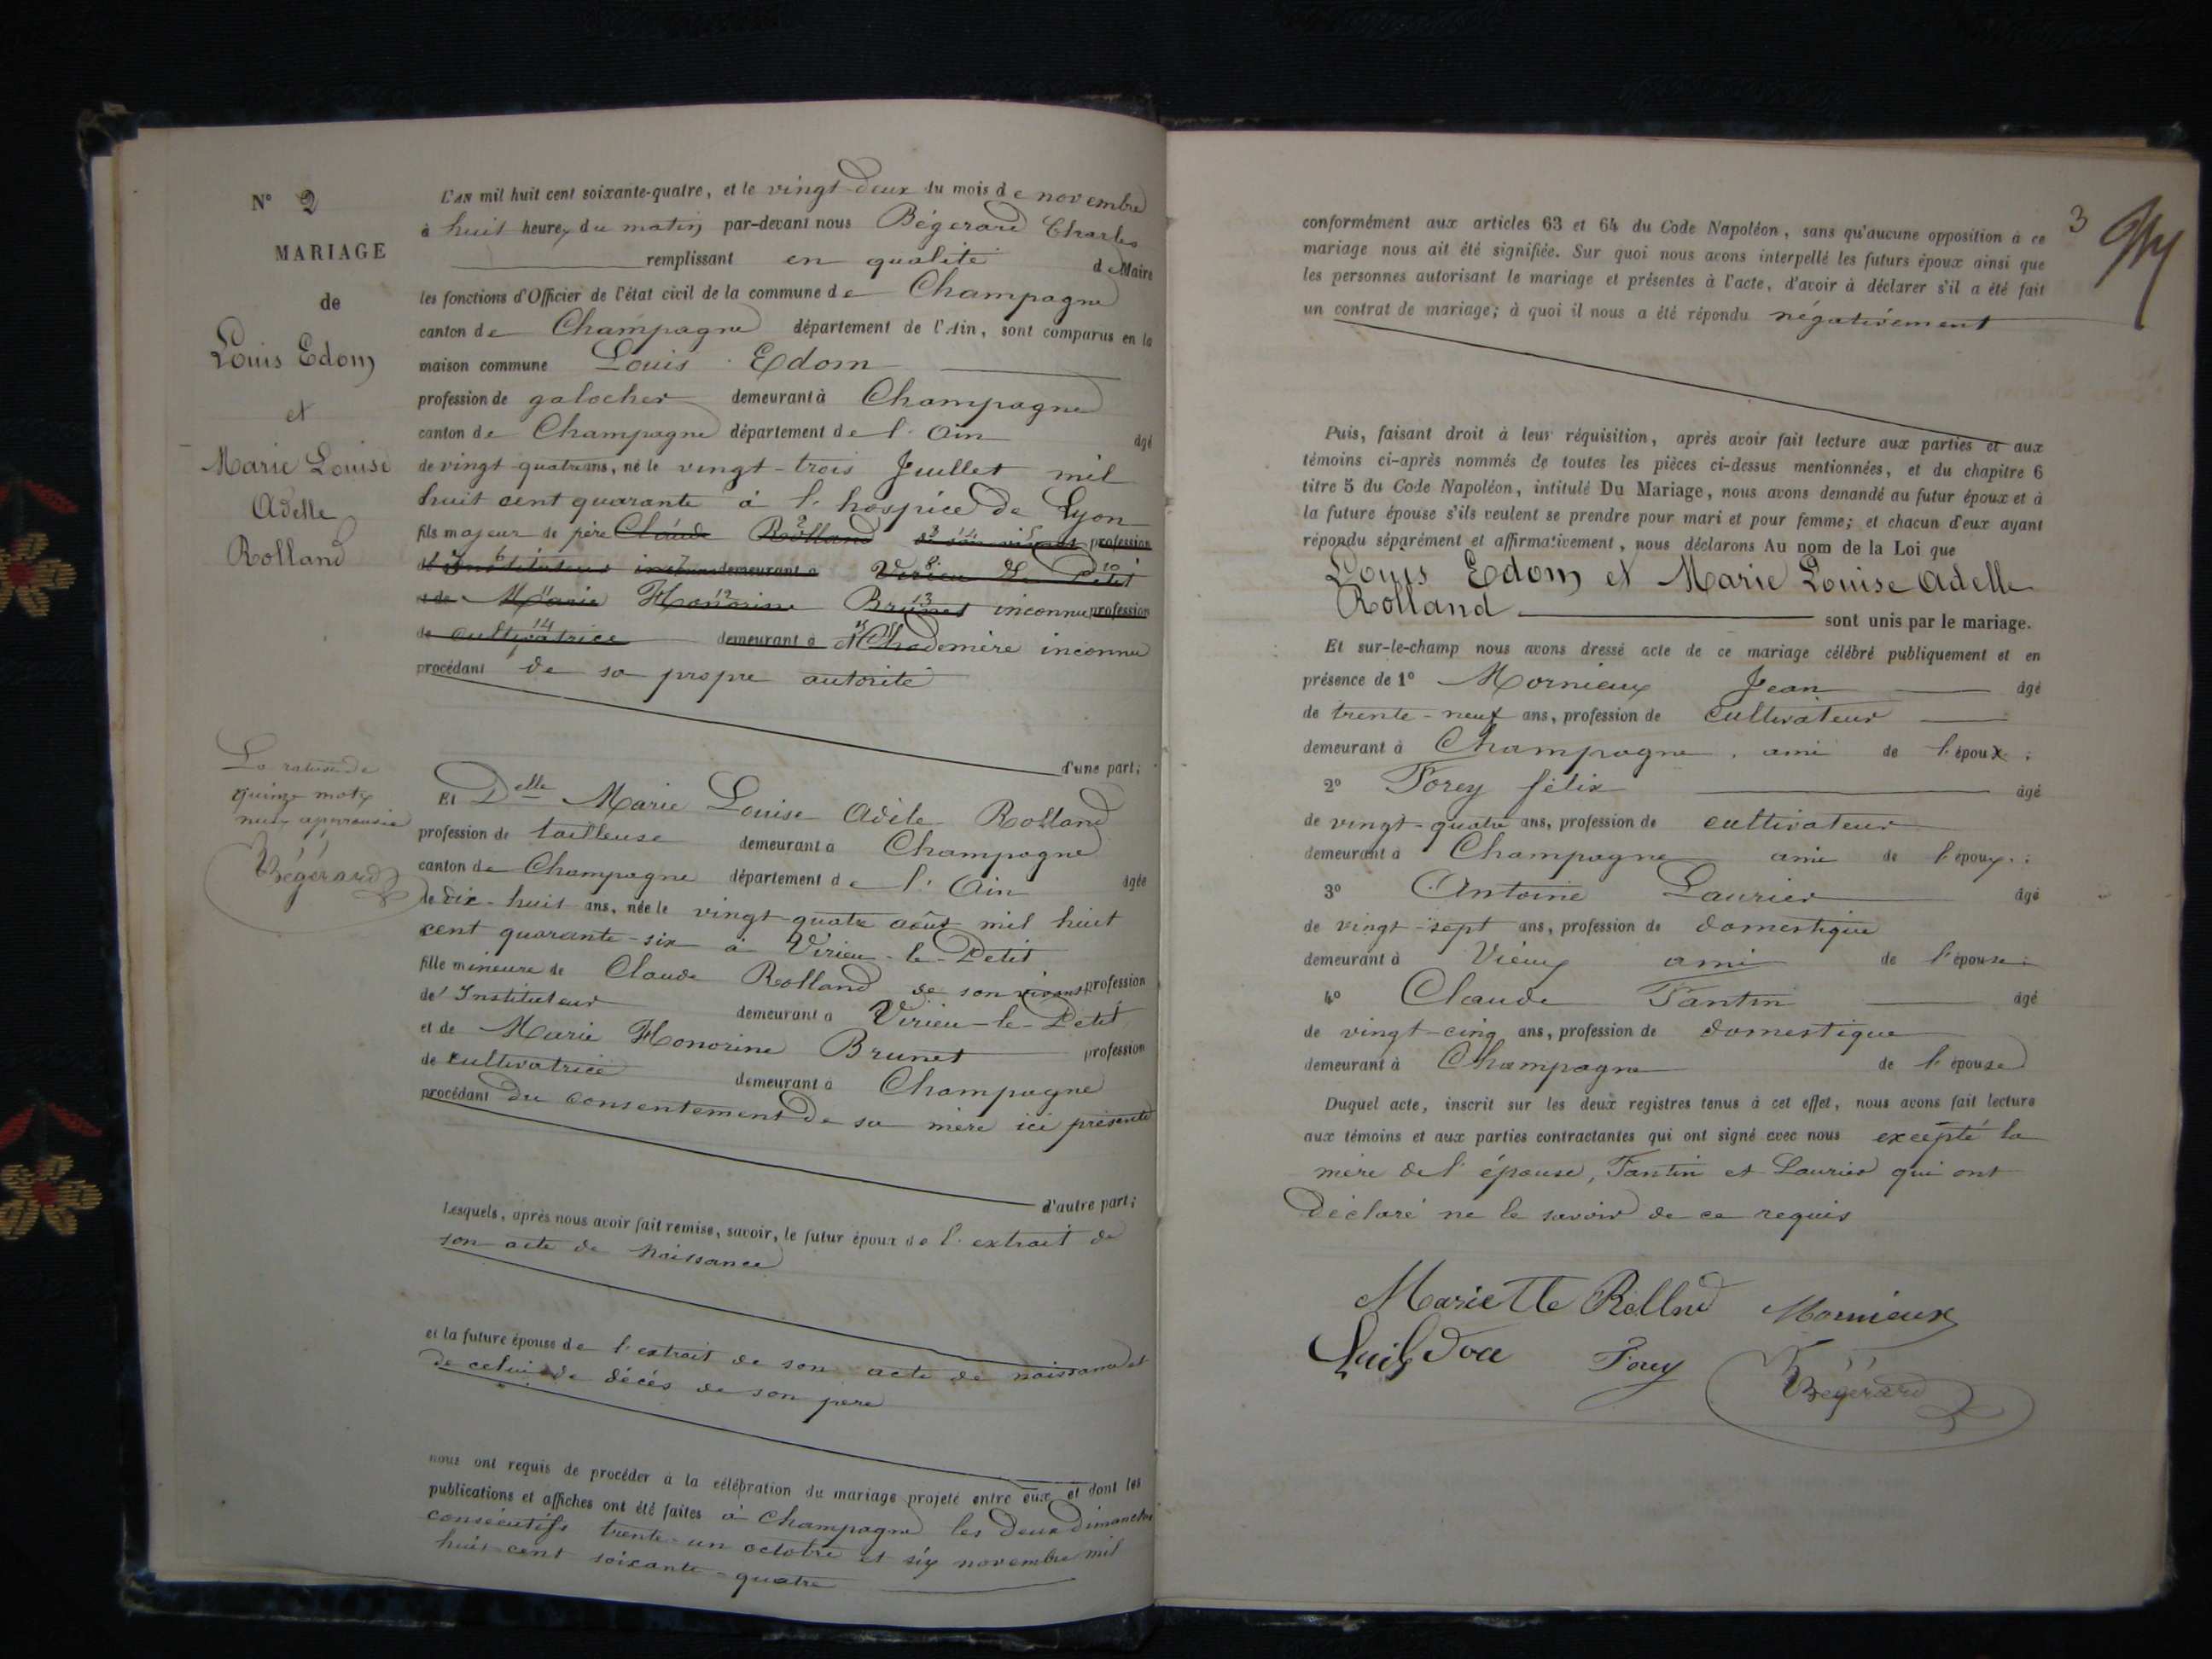 N° 2
MARIAGE
de
Louis Edom
et
Marie Louise
Adelle
Rolland
La rature de
quinze mots
nuls approuvée
Bégerard
L'AN mil huit cent soixante-quatre, et le vingt-deux du mois de novembre
à huit heures du matin par-devant nous Bégerard Charles
remplissant en qualité de Maire
les fonctions d'Officier de l'état civil de la commune de Champagne
canton de Champagne département de l'Ain, sont comparus en la
maison commune Louis Edom
profession de galocher demeurant à Champagne
canton de Champagne département de l'Ain âgé
de vingt-quatre ans, né le vingt-trois Juillet mil
huit cent quarante à l'hospice de Lyon
fils majeur de père Claude Rolland de son vivant profession
d'Instituteur inconnu demeurant à Virieu le Petit
et de Marie Honorine Brunet inconnu profession
de cultivatrice demeurant à et de mère inconnue
procédant de sa propre autorité
d'une part;
Et Delle Marie Louise Adèle Rolland
profession de tailleuse demeurant à Champagne
canton de Champagne département de l'Ain âgée
de dix-huit ans, née le vingt-quatre août mil huit
cent quarante-six à Virieu-le-Petit
fille mineure de Claude Rolland de son vivant profession
de Instituteur demeurant à Virieu-le-Petit
et de Marie Honorine Brunet profession
de cultivatrice demeurant à Champagne
procédant du consentement de sa mère ici présente
d'autre part;
Lesquels, après nous avoir fait remise, savoir, le futur époux de l'extrait de
son acte de naissance
et la future épouse de l'extrait de son acte de naissance et
de celui de décés de son père
nous ont requis de procéder à la célébration du mariage projeté entre eux et dont les
publications et affiches ont été faites à Champagne les deux dimanches
consécutifs trente-un octobre et six novembre mil
huit cent soixante-quatre
3
conformément aux articles 63 et 64 du Code Napoléon, sans qu'aucune opposition à ce
mariage nous ait été signifiée. Sur quoi nous avons interpellé les futurs époux ainsi que
les personnes autorisant le mariage et présentes à l'acte, d'avoir à déclarer s'il a été fait
un contrat de mariage; à quoi il nous a été répondu négativement
Puis, faisant droit à leur réquisition, après avoir fait lecture aux parties et aux
témoins ci-après nommés de toutes les pièces ci-dessus mentionnées, et du chapitre 6
titre 5 du Code Napoléon, intitulé Du Mariage, nous avons demandé au futur époux et à
la future épouse s'ils veulent se prendre pour mari et pour femme; et chacun d'eux ayant
répondu séparément et affirmativement, nous déclarons Au nom de la Loi que
Louis Edom et Marie Louise Adelle
Rolland sont unis par le mariage.
Et sur-le-champ nous avons dressé acte de ce mariage célébré publiquement et en
présence de 1° Mornieux Jean âgé
de trente-neuf ans, profession de cultivateur
demeurant à Champagne, ami de l'époux;
2° Forey félix âgé
de vingt-quatre ans, profession de cultivateur
demeurant à Champagne ami de l'époux;
3° Antoine Laurier âgé
de vingt-sept ans, profession de domestique
demeurant à Vieux ami de l'épouse;
4° Claude Fantin âgé
de vingt-cinq ans, profession de domestique
demeurant à Champagne de l'épouse
Duquel acte, inscrit sur les deux registres tenus à cet effet, nous avons fait lecture
aux témoins et aux parties contractantes qui ont signé avec nous excepté la
mère de l'épouse, Fantin et Laurier qui ont
déclaré ne le savoir de ce requis
Mariette Rollnd Mornieux
Forey Bégerard